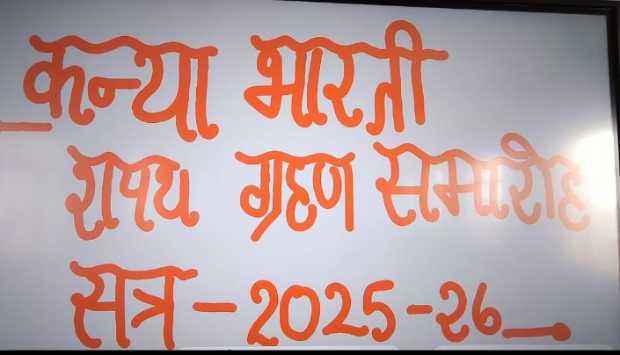 कन्या भारती
शपथ ग्रहण समारोह
सत्र - 2025-26